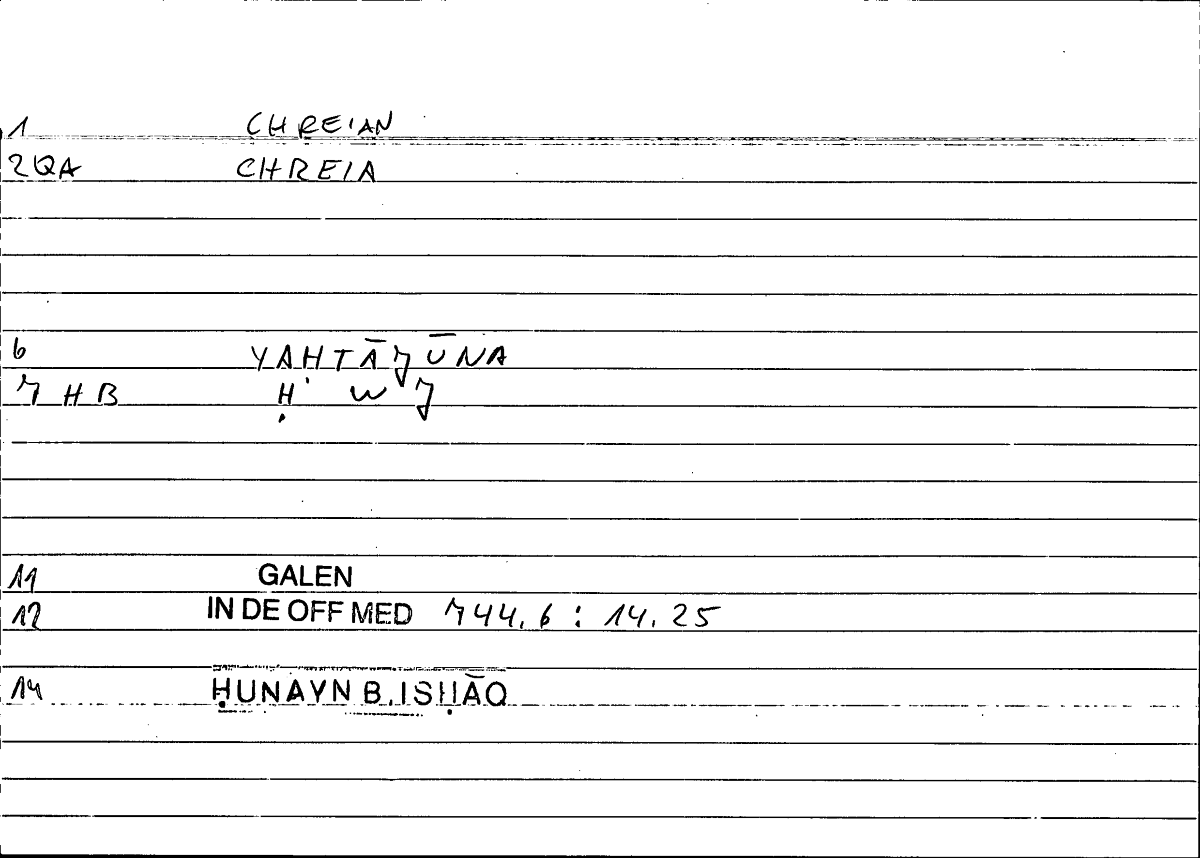 1 CHREIAN
2QA CHREIA
6 YAḤTĀJŪNA
7 HB Ḥ W J
11 GALEN
12 IN DE OFF MED 744.6 : 14.25
14 ḤUNAYN B. ISḤĀQ